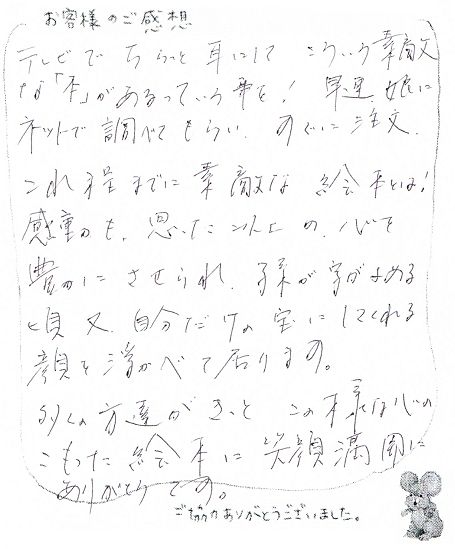 お客様のご感想
テレビでちらっと耳にして こういう素敵
な「本」があるっていう事を！早速、娘に
ネットで調べてもらい、すぐに注文。
これ程までに素敵な絵本とは！
感動も、思った以上の、心を
豊かにさせられ、子様が字がよめる
頃又、自分だけの宝にしてくれる
顔を浮かべて居ります。
多くの方達がきっと この様な心の
こもった絵本に笑顔満開に
ありがとうです。
ご協力ありがとうございました。